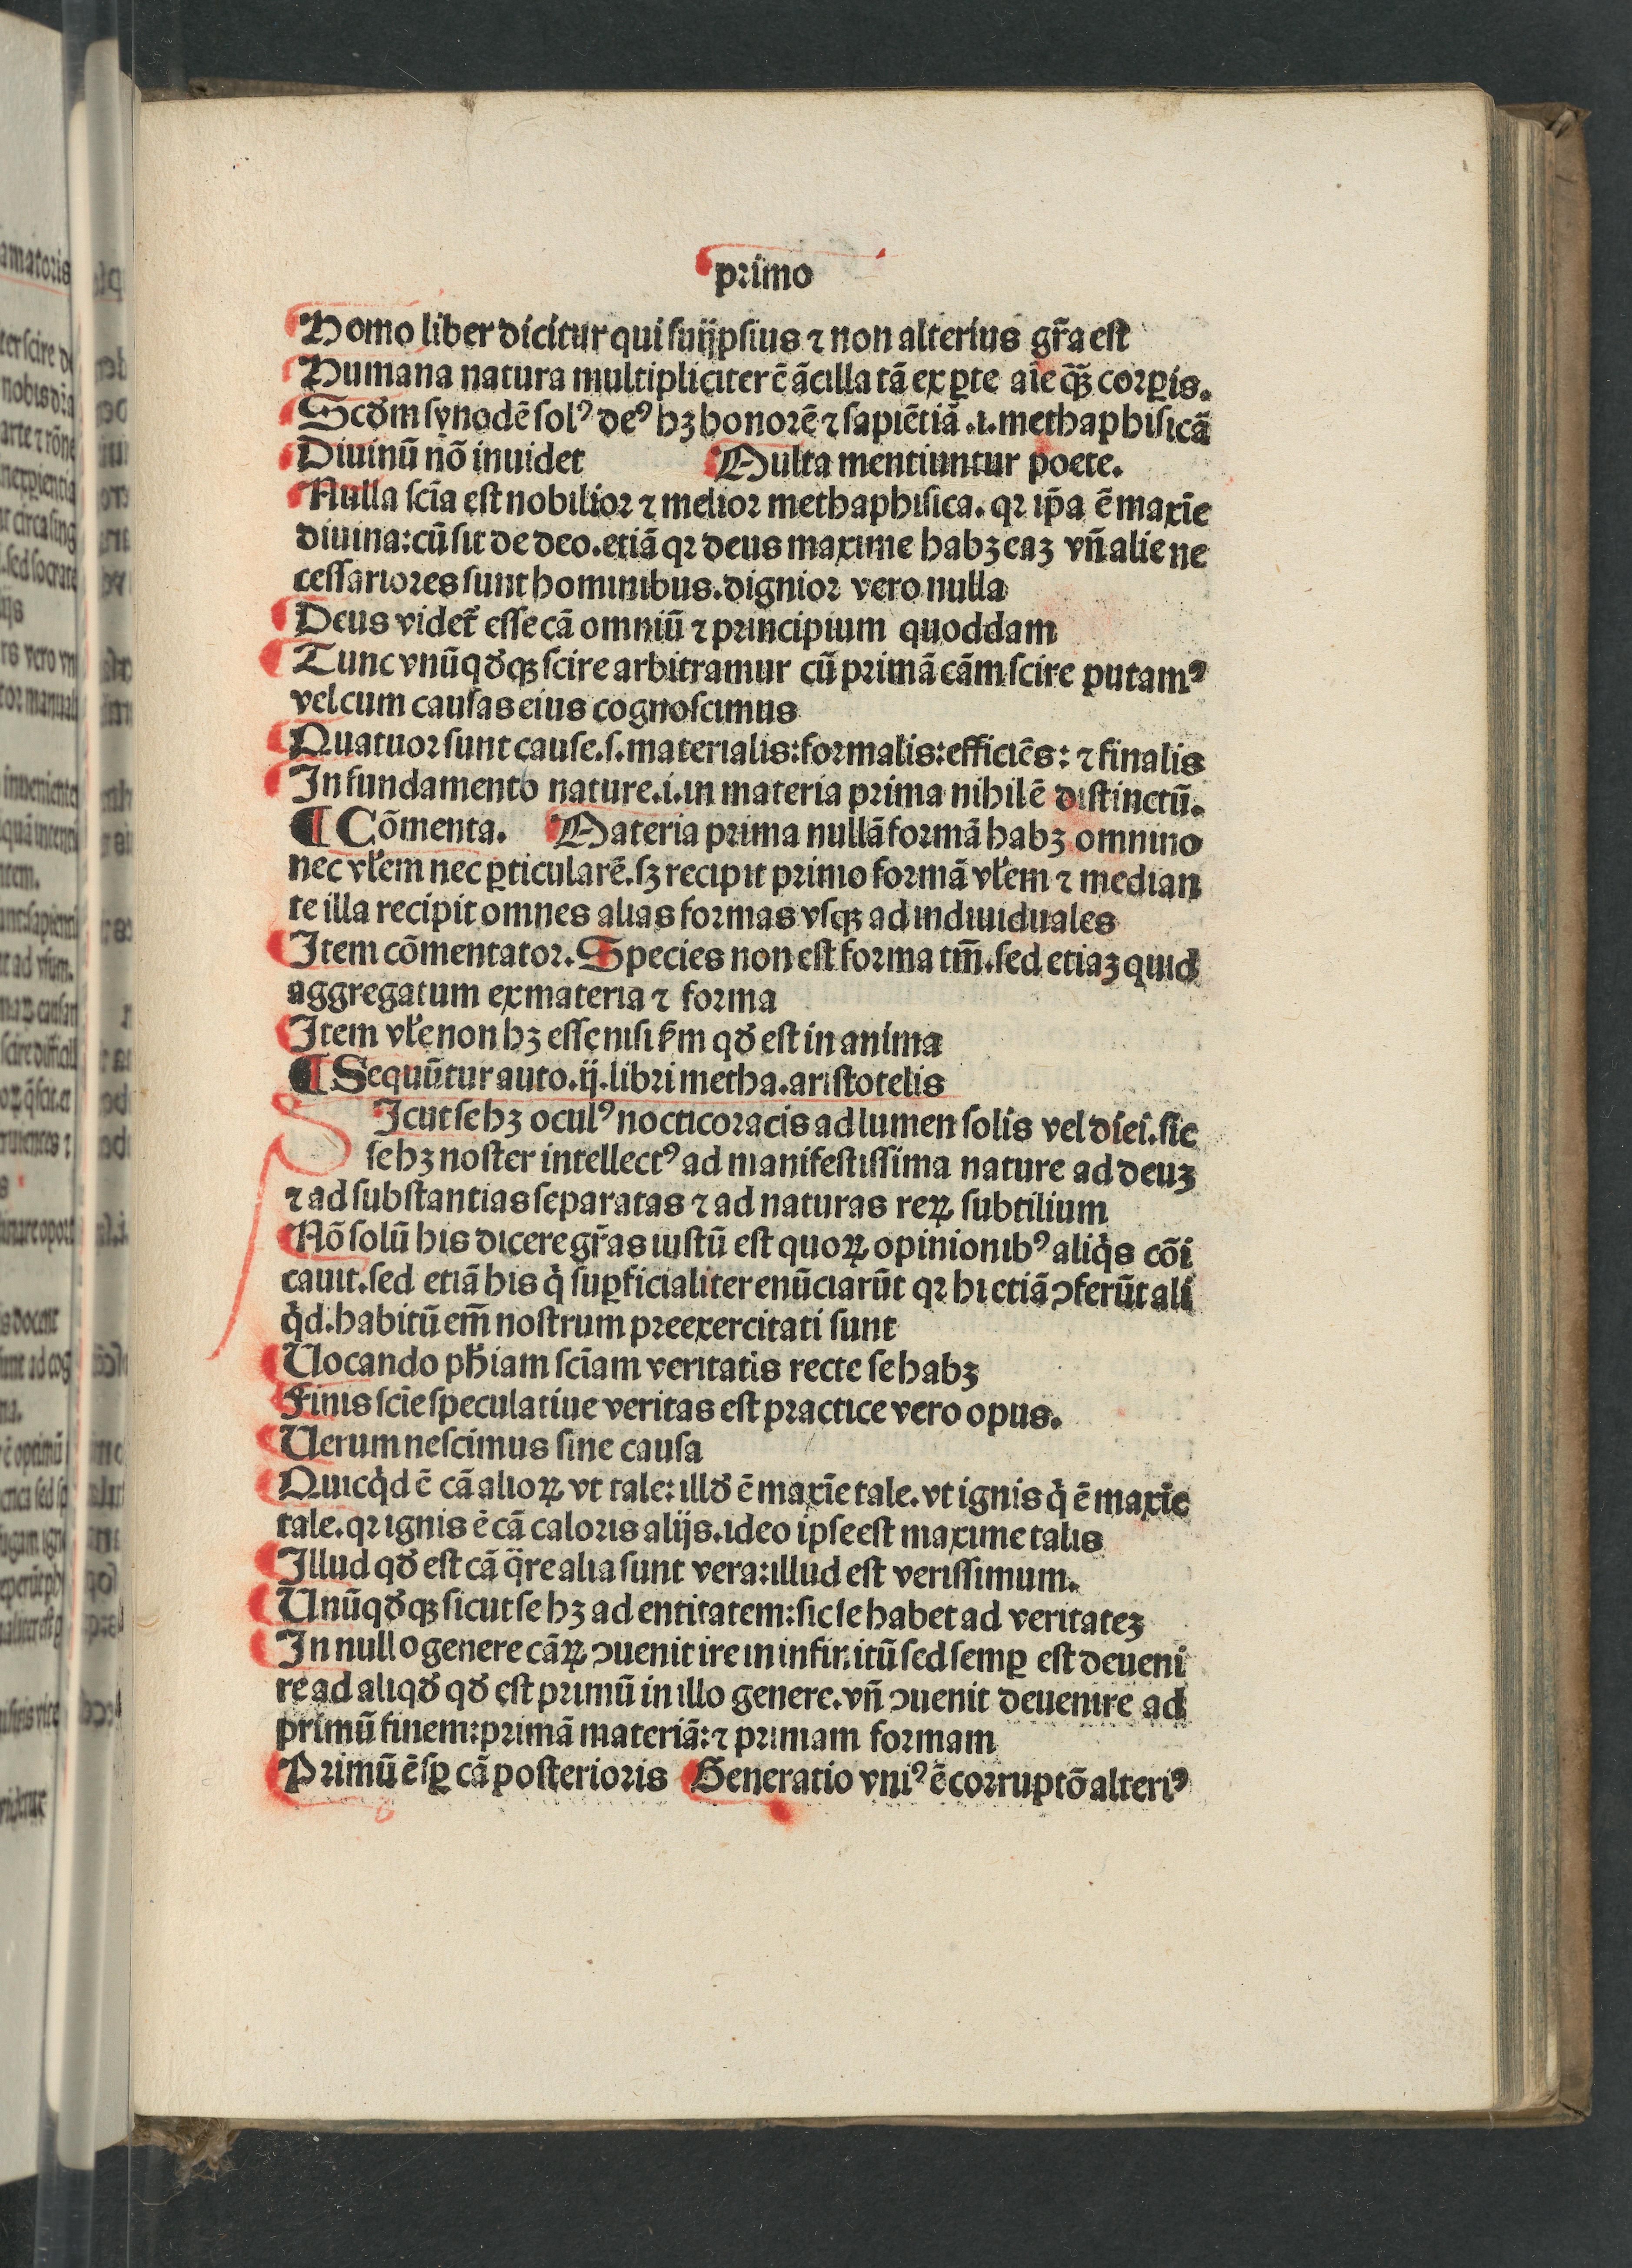 primo
Homo liber dicitur qui suijpsius ⁊ non alterius gr̄a est
Humana natura multipliciter ē ācilla tā ex ꝑte aīe q̄ꝫ corꝑis.
Scďm synodē solꝰ deꝰ hꝫ honorē ⁊ sapiētiā .i. methaphisicā
Diuinū nō inuidet Multa mentiuntur poete.
Nulla scīa est nobilior ⁊ melior methaphisica. qꝛ ip̄a ē maxīe
diuina: cū sit de deo. etiā qꝛ deus maxime habꝫ eaꝫ vn̄ alie ne
cessariores sunt hominibus. dignior vero nulla
Deus videt̄ esse cā omniū ⁊ principium quoddam
Tunc vnūqďqꝫ scire arbitramur cū primā cām scire putamꝰ
vel cum causas eius cognoscimus
Quatuor sunt cause. s. materialis: formalis: efficiēs: ⁊ finalis
In fundamento nature. i. in materia prima nihil ē distinctū.
¶ Cōmenta. Materia prima nullā formā habꝫ omnino
nec vl̄em nec ꝑticularē. sꝫ recipit primo formā vl̄em ⁊ median
te illa recipit omnes alias formas vsqꝫ ad indiuiduales
Item cōmentator. Species non est forma tm̄. sed etiaꝫ quid
aggregatum ex materia ⁊ forma
Item vl̄e non hꝫ esse nisi ẜm qď est in anima
¶ Sequūtur auto. ij. libri metha. aristotelis
SIcut se hꝫ oculꝰ nocticoracis ad lumen solis vel diei. sic
se hꝫ noster intellectꝰ ad manifestissima nature ad deuꝫ
⁊ ad substantias separatas ⁊ ad naturas reꝝ subtilium
Nō solū his dicere gr̄as iustū est quoꝝ opinionibꝰ aliq̇s cōi
cauit. sed etiā his q̇ suꝑficialiter enūciarūt qꝛ hi etiā ↄferūt ali
q̇d. habitū em̄ nostrum preexercitati sunt
Uocando ph̄iam scīam veritatis recte se habꝫ
Finis scīe speculatiue veritas est practice vero opus.
Uerum nescimus sine causa
Quicq̇d ē cā alioꝝ vt tale: illď ē maxīe tale. vt ignis q̇ ē maxīe
tale. qꝛ ignis ē cā caloris alijs. ideo ipse est maxime talis
Illud qď est cā q̄re alia sunt vera: illud est verissimum.
Unūqďqꝫ sicut se hꝫ ad entitatem: sic se habet ad veritateꝫ
In nullo genere cāꝝ ↄuenit ire in infinitū sed semꝑ est deueni
re ad aliqď qď est primū in illo genere. vn̄ ↄuenit deuenire ad
primū finem: primā materiā: ⁊ primam formam
Primū ē sꝑ cā posterioris Generatio vniꝰ ē corruptō alteriꝰ